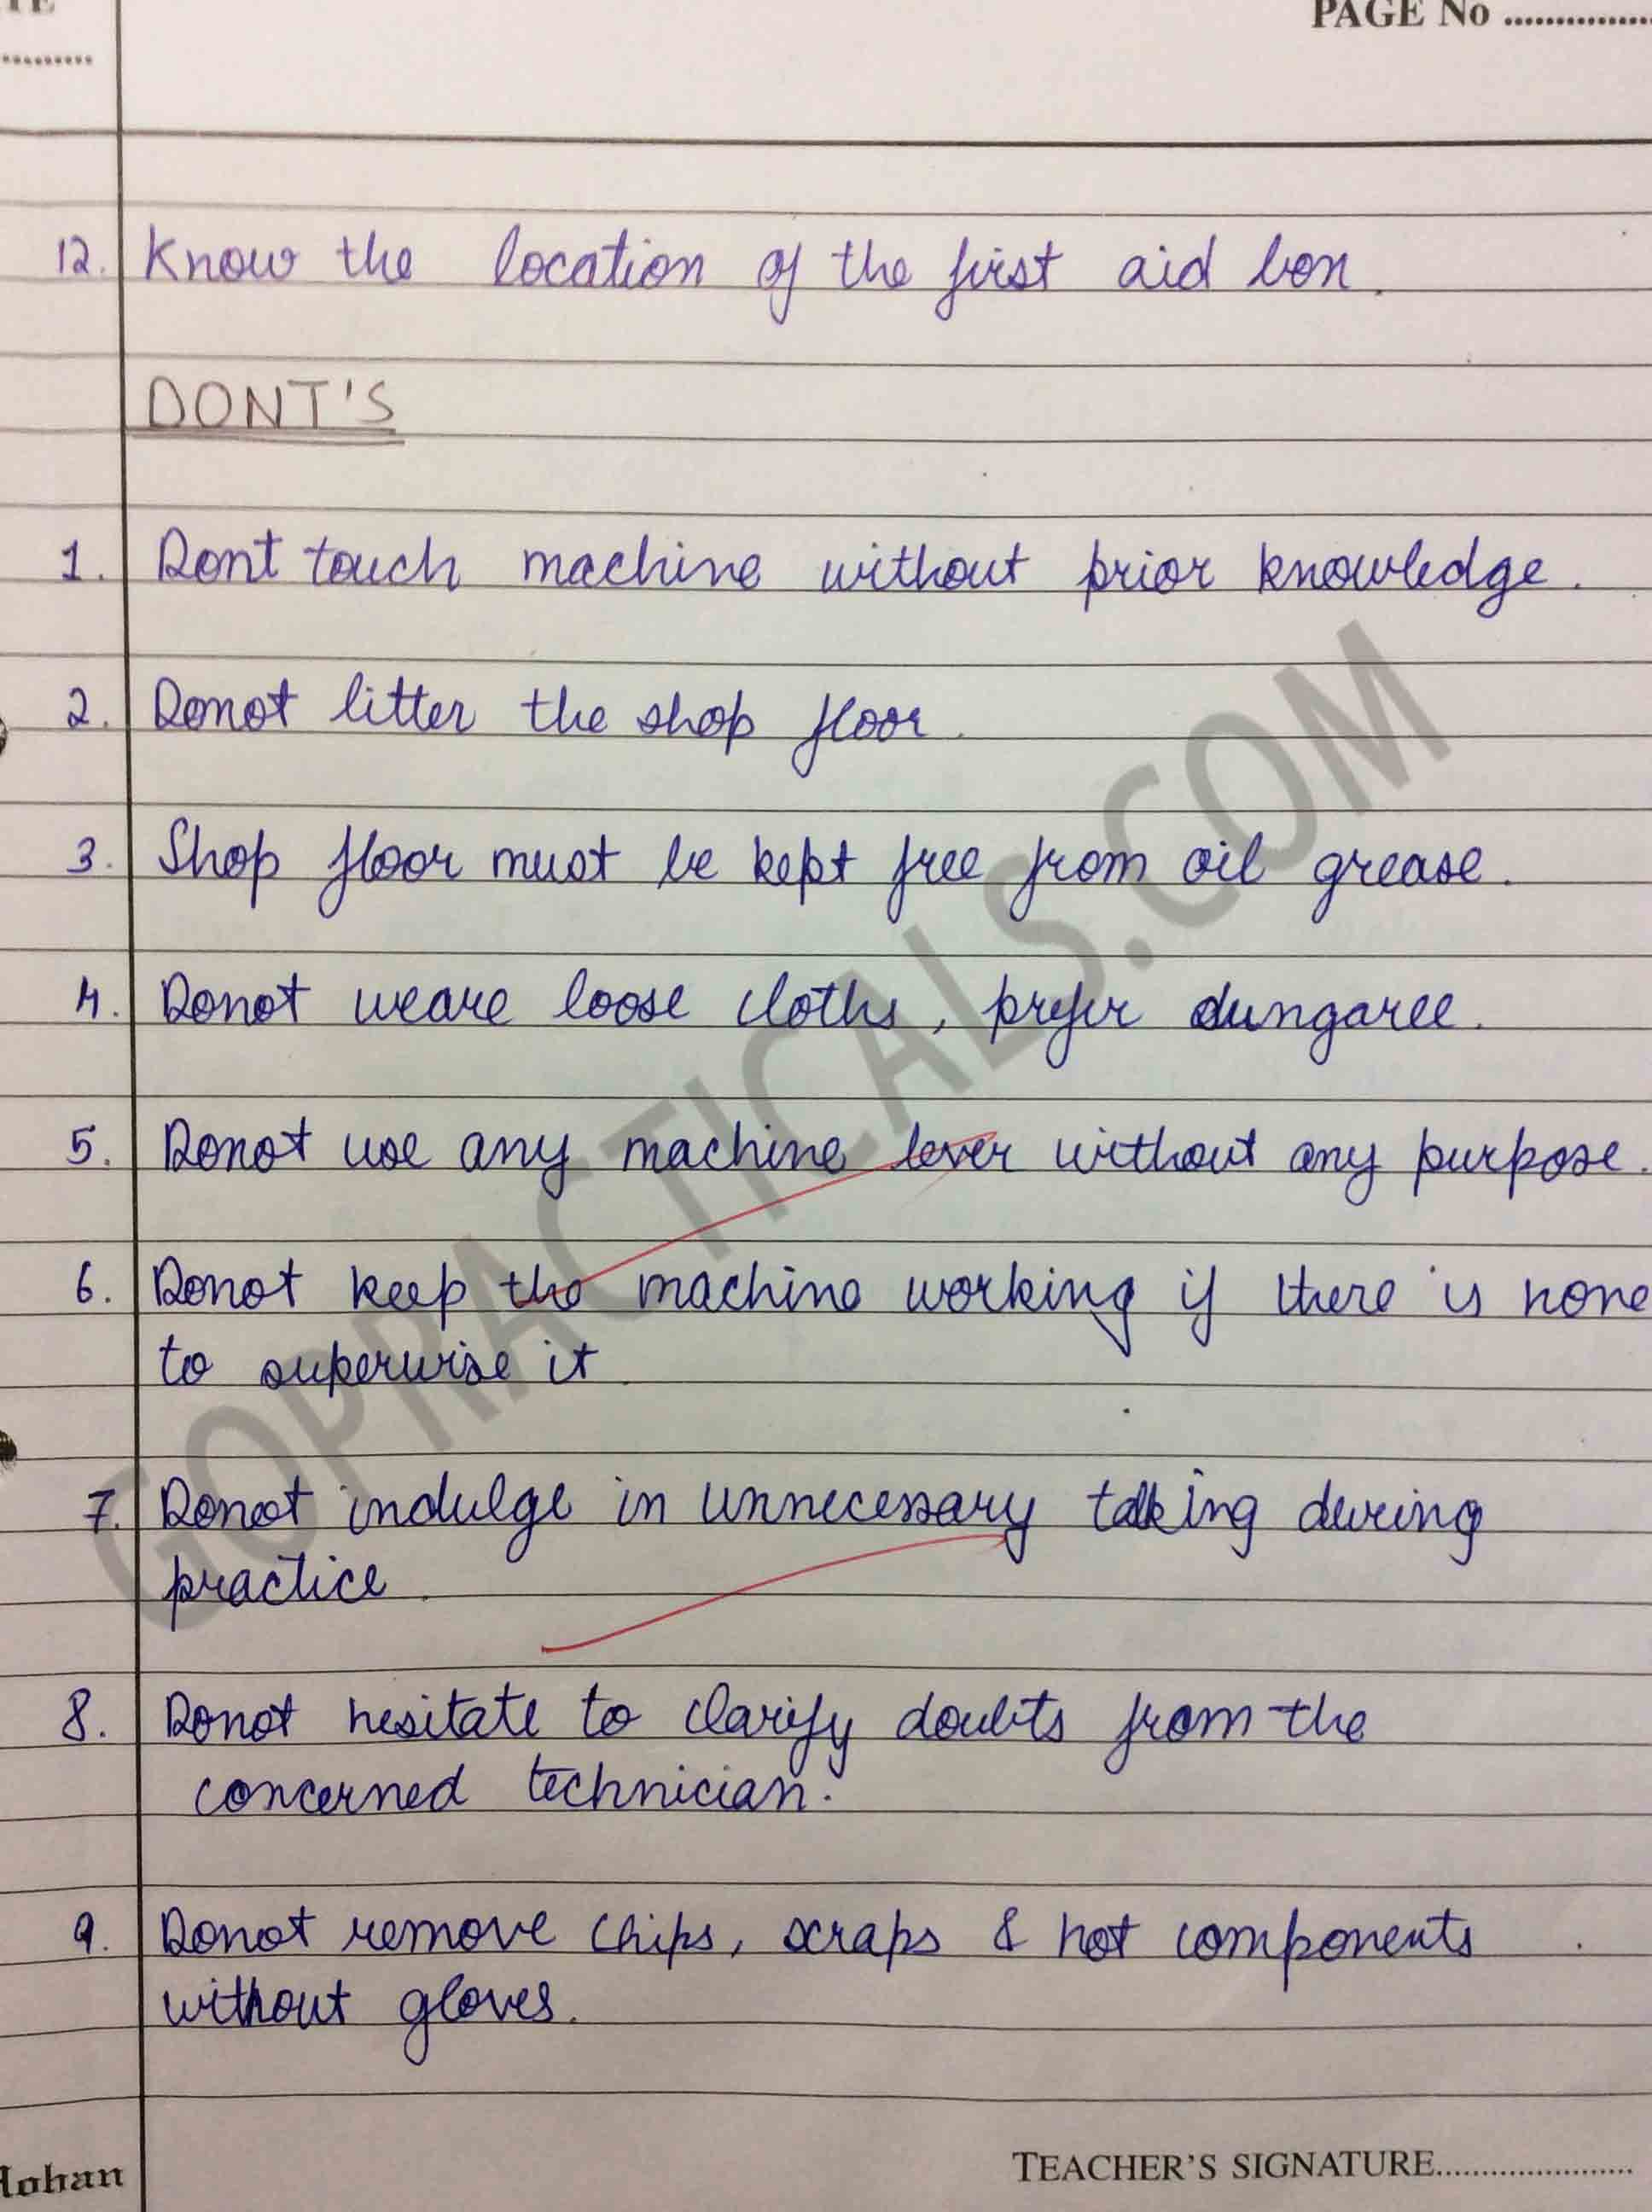 TE
PAGE No ................
.........
12. Know the location of the first aid box.
DONT'S
1. Dont touch machine without prior knowledge.
2. Donot litter the shop floor.
3. Shop floor must be kept free from oil grease.
4. Donot weare loose cloths, prefer dungaree.
5. Donot use any machine lever without any purpose.
6. Donot keep the machine working if there is none
to superwise it.
7. Donot indulge in unnecessary talking during
practice.
8. Donot hesitate to clarify doubts from the
concerned technician.
9. Donot remove chips, scraps & hot components
without gloves.
GOPRACTICALS.COM
Mohan
TEACHER'S SIGNATURE......................